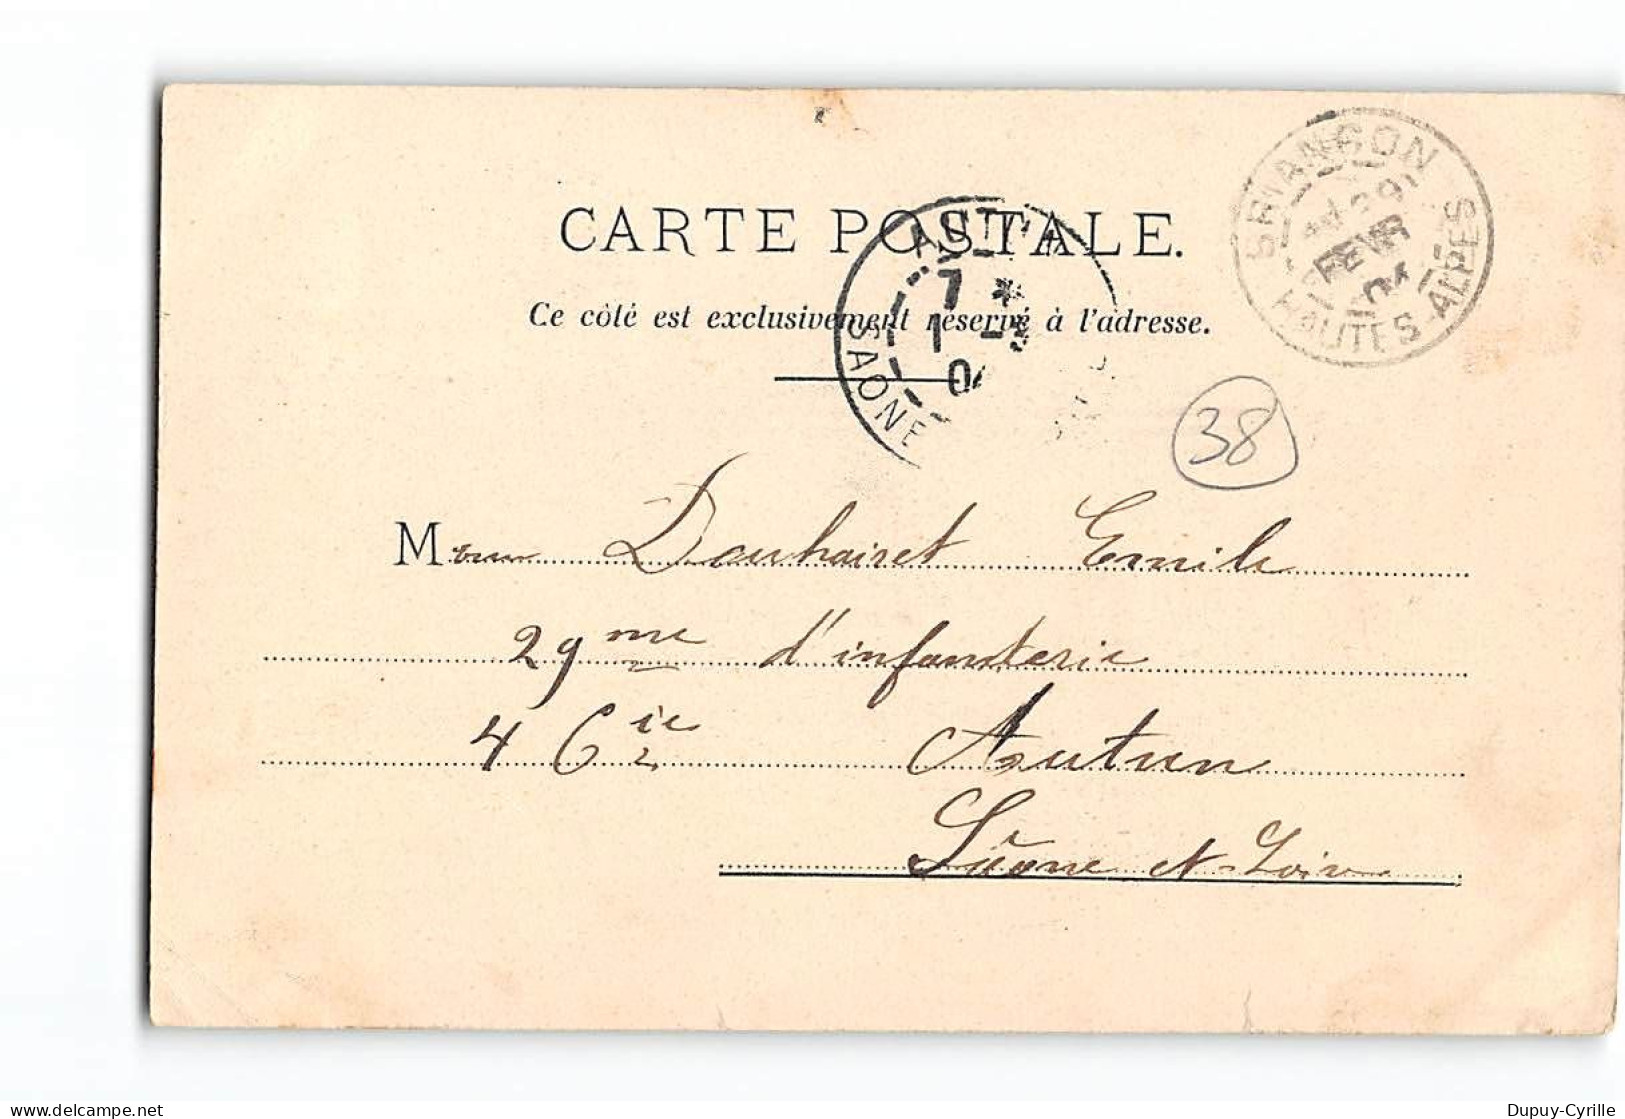 CARTE POSTALE.
Ce côté est exclusivement réservé à l'adresse.
BRIANCON
29
FEVR
04
HAUTES-ALPES
AUTUN
7 *
1 -3
04
SAONE
38
M Dauhairet Emile
29me d'infanterie
4 Cie Autun
Saône et Loire
Dupuy-Cyrille